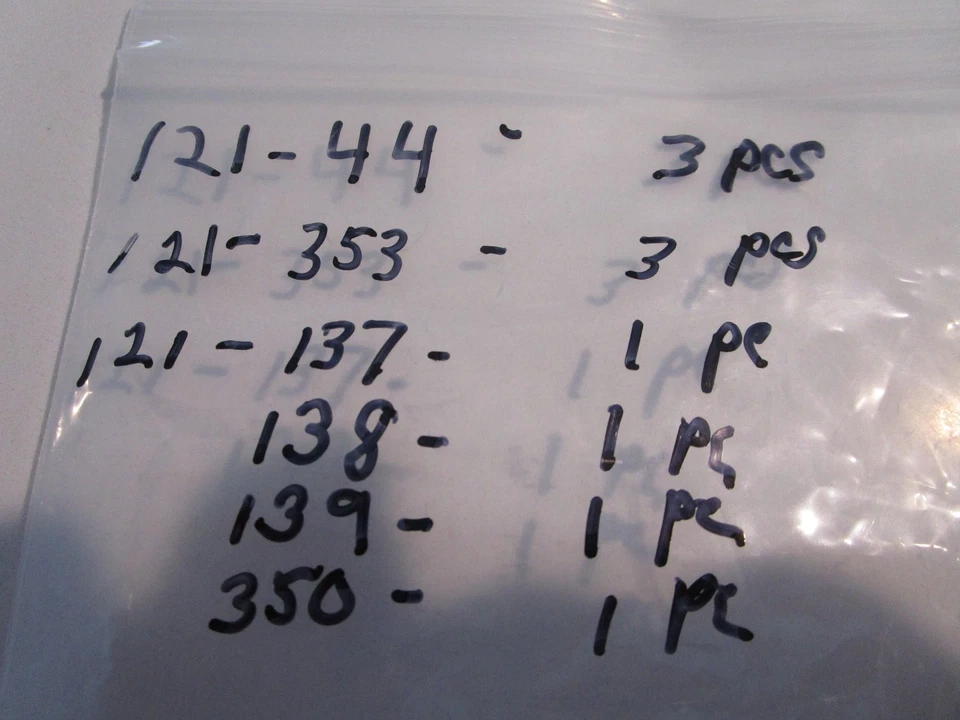 121-44 - 3 pcs
121-353 - 3 pcs
121-137- 1 pc
138- 1 pc
139- 1 pc
350- 1 pc